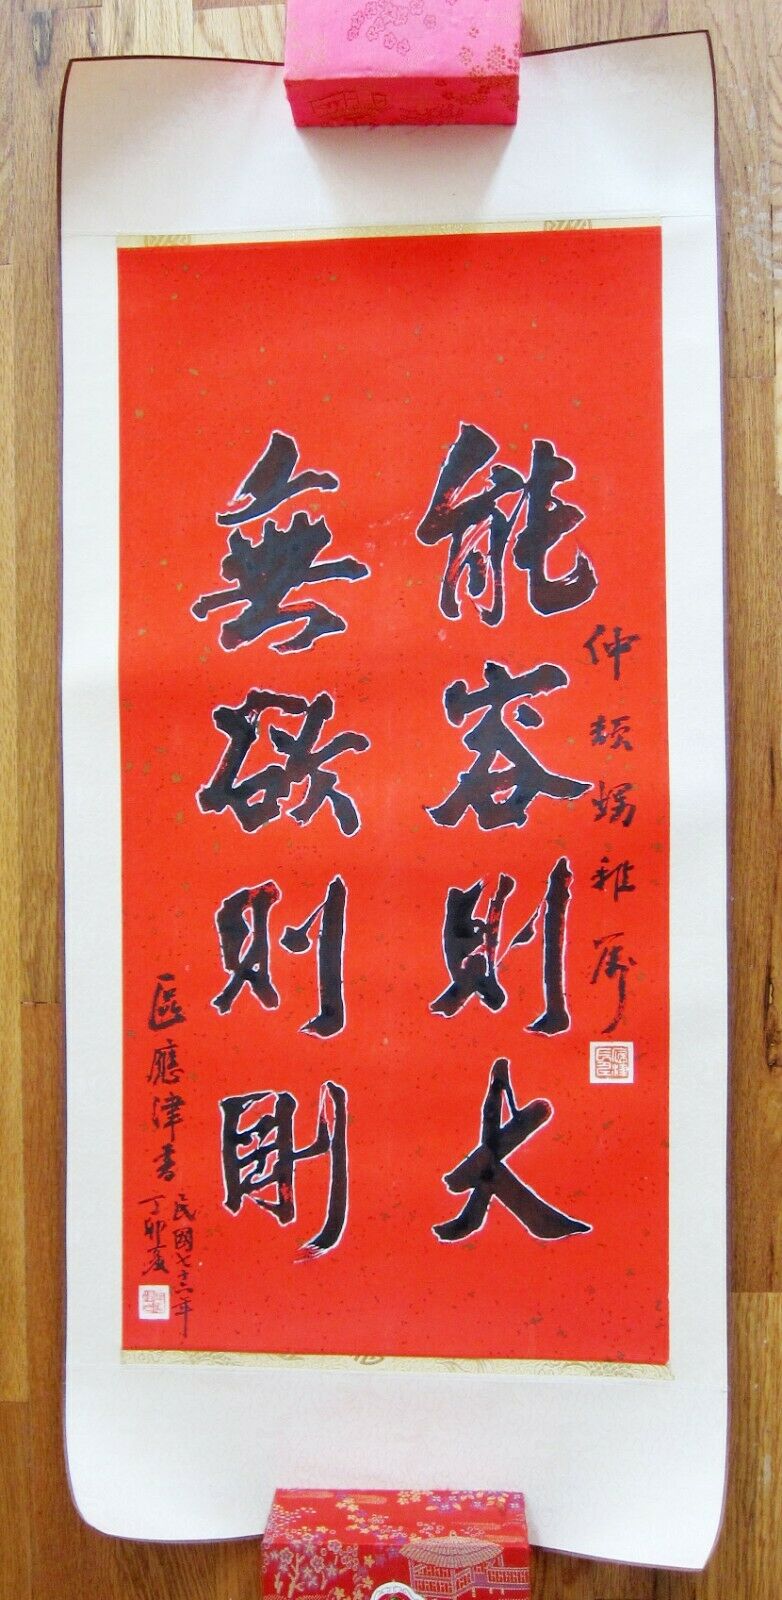 能容則大
無欲則剛
仲頡甥雅屬
區應津書
民國七十六年
丁卯夏